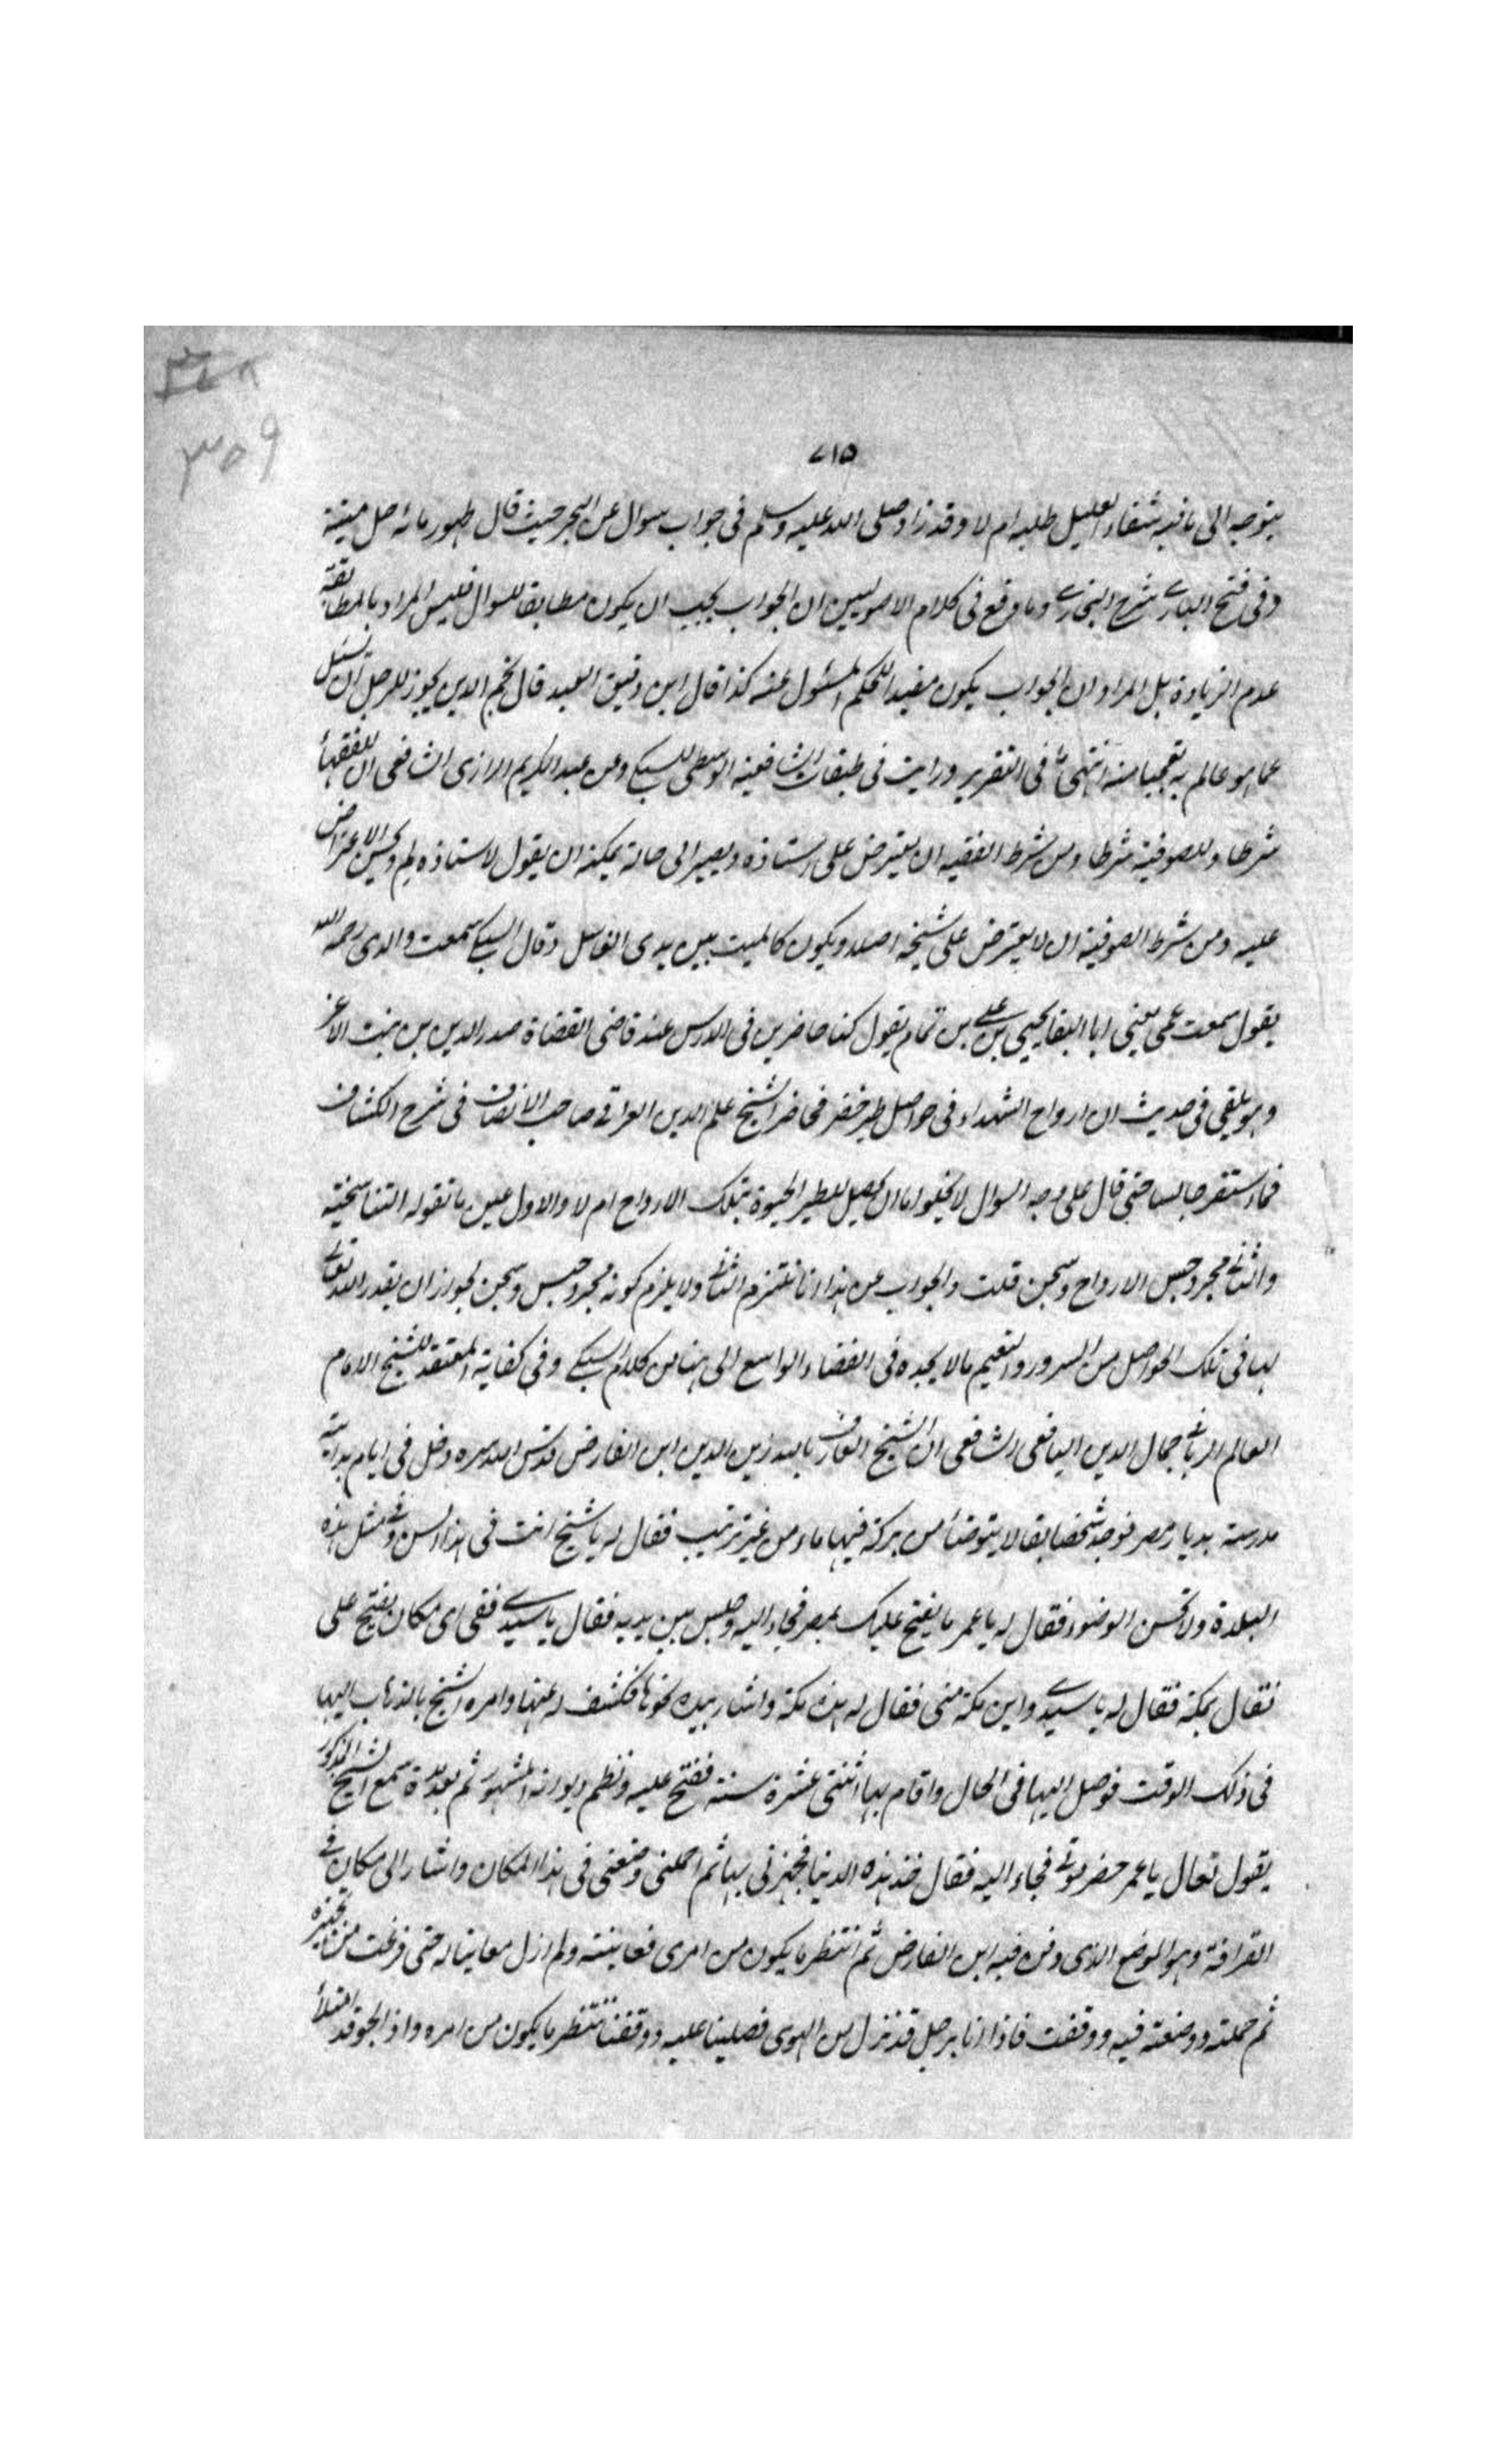 ٣٤٨
٣٥٩
٧١٥
يتوجه الى ما فيه شفاء العليل طلبه ام لا وقد زاد صلى الله عليه وسلم فى جواب سوال عن البحر حيث قال طهور مائه حل ميتته
وفى فتح البارے شرح البخارے وما وقع فى كلام الاصوليين ان الجواب يجب ان يكون مطابقا للسوال فليس المراد بالمطابقة
عدم الزيادة بل المراد ان الجواب يكون مفيدا للحكم المسئول عنه كذا قال ابن دقيق العيد قال نجم الدين يجوز للرجل ان يسئل
عما هو عالم به تعجبا منه انتهى فى التقرير ورايت فى طبقات الشافعية الوسطى للسبكے وعن عبد الكريم الرازى الشافعى ان للفقهاء
شرطا وللصوفية شرطا ومن شرط الفقيه ان يعترض على استاذه ويصير الى حالة يمكنه ان يقول لاستاذه لم ويحسن الاعتراض
عليه ومن شرط الصوفية ان لا يعترض على شيخه اصلا ويكون كالميت بين يدى الغاسل وقال السبكے سمعت والدى رحمه الله
يقول سمعت عمى يعنى ابا البقا يحيى بن على بن تمام يقول كنا حاضرين فى الدرس عند قاضى القضاة صدر الدين بن بنت الاعز
وهو يلقى فى حديث ان ارواح الشهداء فى حواصل طير خضر فحاضر الشيخ علم الدين العراقے صاحب الانصاف فى شرح الكشاف
فما استقر جالسا حتى قال على وجه السوال لا يخلوا ما ان يحصل للطير الحيوة بتلك الارواح ام لا والاول عين ما تقوله التناسخية
والثانے مجرد حبس الارواح وسجن قلت والجواب عن هذا انا نلتزم الثانے ولا يلزم كونه مجرد حبس وسجن لجواز ان يقدر الله تعالے
لها فى تلك الحواصل من السرور والنعيم ما لا يجده فى الفضاء الواسع الى هنا من كلام السبكے وفى كفاية المعتقد للشيخ الامام
العالم الربانے جمال الدين اليافعى الشافعى ان الشيخ العارف بالله زين الدين ابن الفارض قدس الله سره دخل فى ايام بدايته
مدرسة بديار مصر فوجد شخصا بقالا يتوضأ من بركة فيها ماء من غير ترتيب فقال له يا شيخ انت فى هذا السن وفى مثل هذه
البلدة ولا تحسن الوضوء فقال له يا عمر ما يفتح عليك بمصر فجاء اليه وجلس بين يديه فقال يا سيدے ففى اى مكان يفتح على
فقال بمكة فقال له يا سيدے واين مكة منى فقال له هذه مكة واشار بيده نحوها فكشف له عنها وامره الشيخ بالذهاب اليها
فى ذلك الوقت فوصل اليها فى الحال واقام بها اثنتى عشرة سنة ففتح عليه ونظم ديوانه المشهور ثم بعد مدة سمع الشيخ المذكور
يقول تعال يا عمر حضر موتے فجاء اليه فقال خذ هذه الدنيا فجهزنى بها ثم احملنى وضعنى فى هذا المكان واشار الى مكان فے
القرافة وهو الموضع الذى دفن فيه ابن الفارض ثم انتظر ما يكون من امرى فعاينته ولم ازل معاينا له حتى فرغت من تجهيزه
ثم حملته ووضعته فيه ووقفت فاذا انا برجل قد نزل من الهوى فصلينا عليه ووقفنا ننتظر ما يكون من امره واذا الجو قد امتلأ